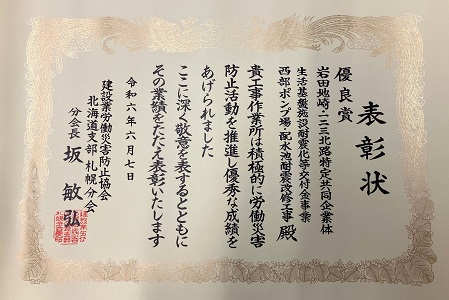 表彰状
優良賞
岩田地崎・二三北路特定共同企業体
生活基盤施設耐震化等交付金事業
西部ポンプ場・配水池耐震改修工事 殿
貴工事作業所は積極的に労働災害
防止活動を推進し優秀な成績を
あげられました
ここに深く敬意を表するとともに
その業績をたたえ表彰いたします
令和六年六月七日
建設業労働災害防止協会
北海道支部 札幌分会
分会長 坂 敏弘